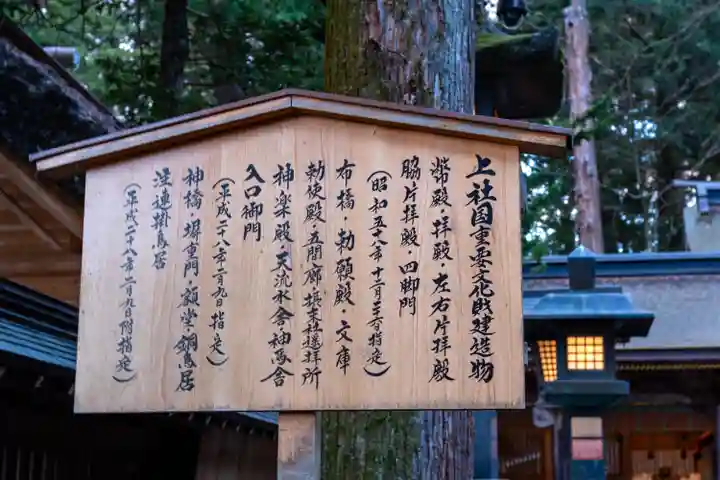 上社国重要文化財建造物
幣殿・拝殿・左右片拝殿
脇片拝殿・四脚門
（昭和五十八年十二月二十六日指定）
布橋・勅願殿・文庫
勅使殿・五間廊・摂末社遙拝所
神楽殿・天流水舎・神馬舎
入口御門
（平成二十八年二月九日指定）
神橋・塀重門・額堂・銅鳥居
注連掛鳥居
（平成二十八年二月九日附指定）